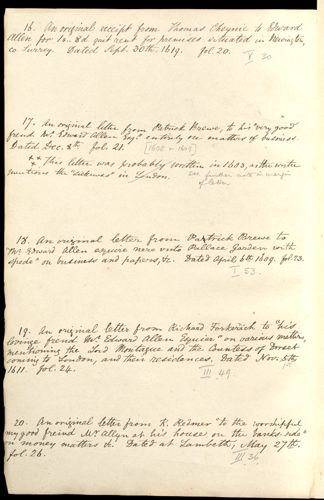 16. An original receipt from Thomas Cheynie to Edward
Allen for 1s. 8d quit rent for premises situated in Newington,
co. Surrey. Dated Sept. 30th. 1619. fol. 20.
V 30
17. An original letter from Patrick Brewe, to his "very good
frend Mr. Edward Allen Esqr." entirely on matters of business.
Dated Dec. 8th fol. 21. [1608 or 1609]
This letter was probably written in 1603, as the writer
mentions the "sicknes" in London. see further note in margin
of letter
18. An original letter from Patrick Brewe to
"Mr. Edward Allen equire nere unto Pallace Garden with
spede" on business and papers, &c. Dated April 6th 1609. fol. 23.
I 53.
19. An original letter from Richard "his
lovinge frend Mr. Edward Allen Equier" on various matters,
mentioning the Lord Montague and the Countess of Dorset
coming to London, and their residences. Dated Nov. 5th
1611. fol. 24.
III 49.
20. An original letter from K. Redmer "to the worshipfull
my good freind Mr. Allyn at his house on the banke side"
on money matters &c. Dated at Lambeth, May 27th.
fol. 26.
III 36